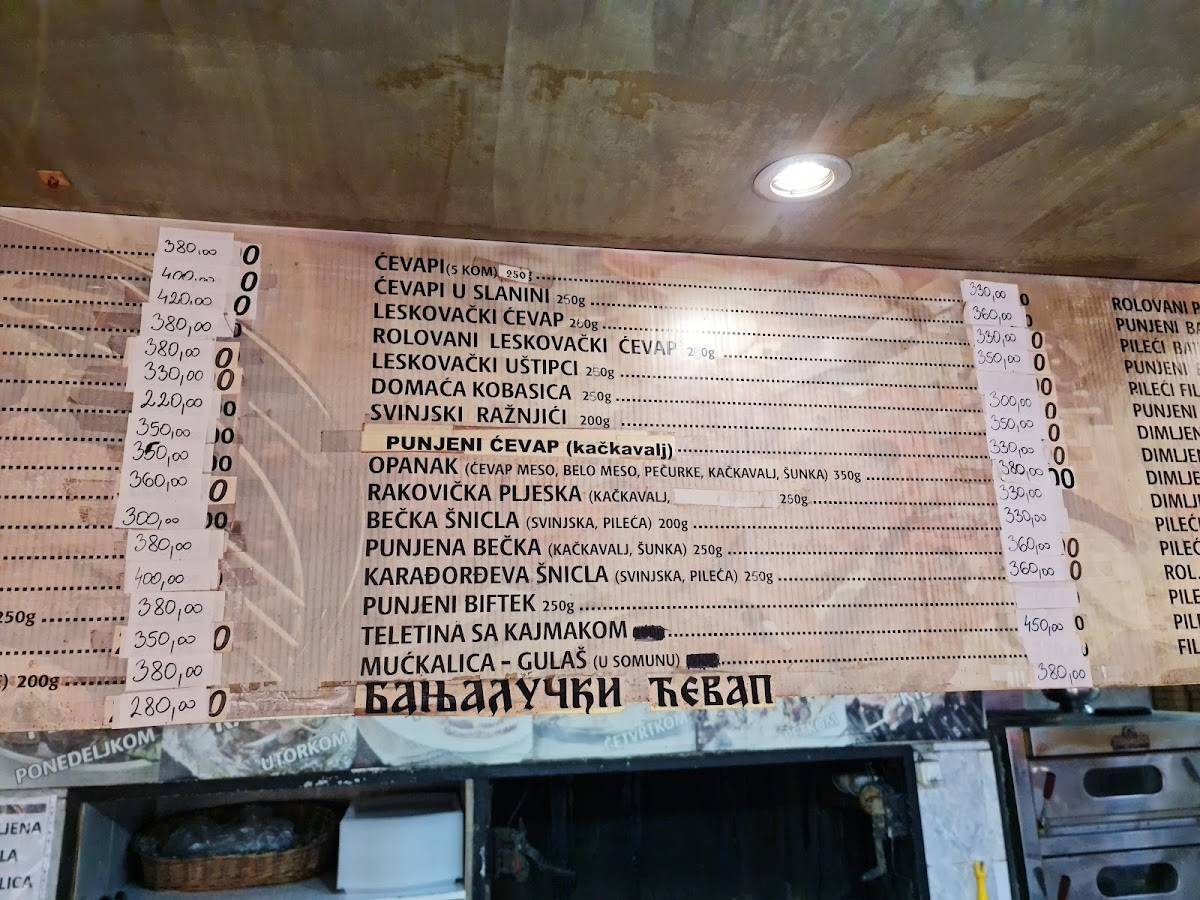 380,00
400,00
420,00
380,00
380,00
330,00
220,00
350,00
350,00
360,00
300,00
380,00
400,00
250g 380,00
350,00
200g 380,00
280,00
ĆEVAPI (5 KOM) 250g 330,00
ĆEVAPI U SLANINI 250g 360,00
LESKOVAČKI ĆEVAP 330,00
ROLOVANI LESKOVAČKI ĆEVAP 350,00
LESKOVAČKI UŠTIPCI
DOMAĆA KOBASICA 250g 300,00
SVINJSKI RAŽNJIĆI 200g 350,00
PUNJENI ĆEVAP (kačkavalj) 330,00
OPANAK (ĆEVAP MESO, BELO MESO, PEČURKE, KAČKAVALJ, ŠUNKA) 350g 380,00
RAKOVIČKA PLJESKA (KAČKAVALJ, 250g 330,00
BEČKA ŠNICLA (SVINJSKA, PILEĆA) 200g 330,00
PUNJENA BEČKA (KAČKAVALJ, ŠUNKA) 250g 360,00
KARAĐORĐEVA ŠNICLA (SVINJSKA, PILEĆA) 250g 360,00
PUNJENI BIFTEK 250g
TELETINA SA KAJMAKOM 450,00
MUĆKALICA - GULAŠ (U SOMUNU) 380,00
БАЊАЛУЧКИ ЋЕВАП
ROLOVANI
PUNJENI
PILEĆI
PUNJENI
PILEĆI
PUNJENI
ROL.
PONEDELJKOM
UTORKOM
ČETVRTKOM